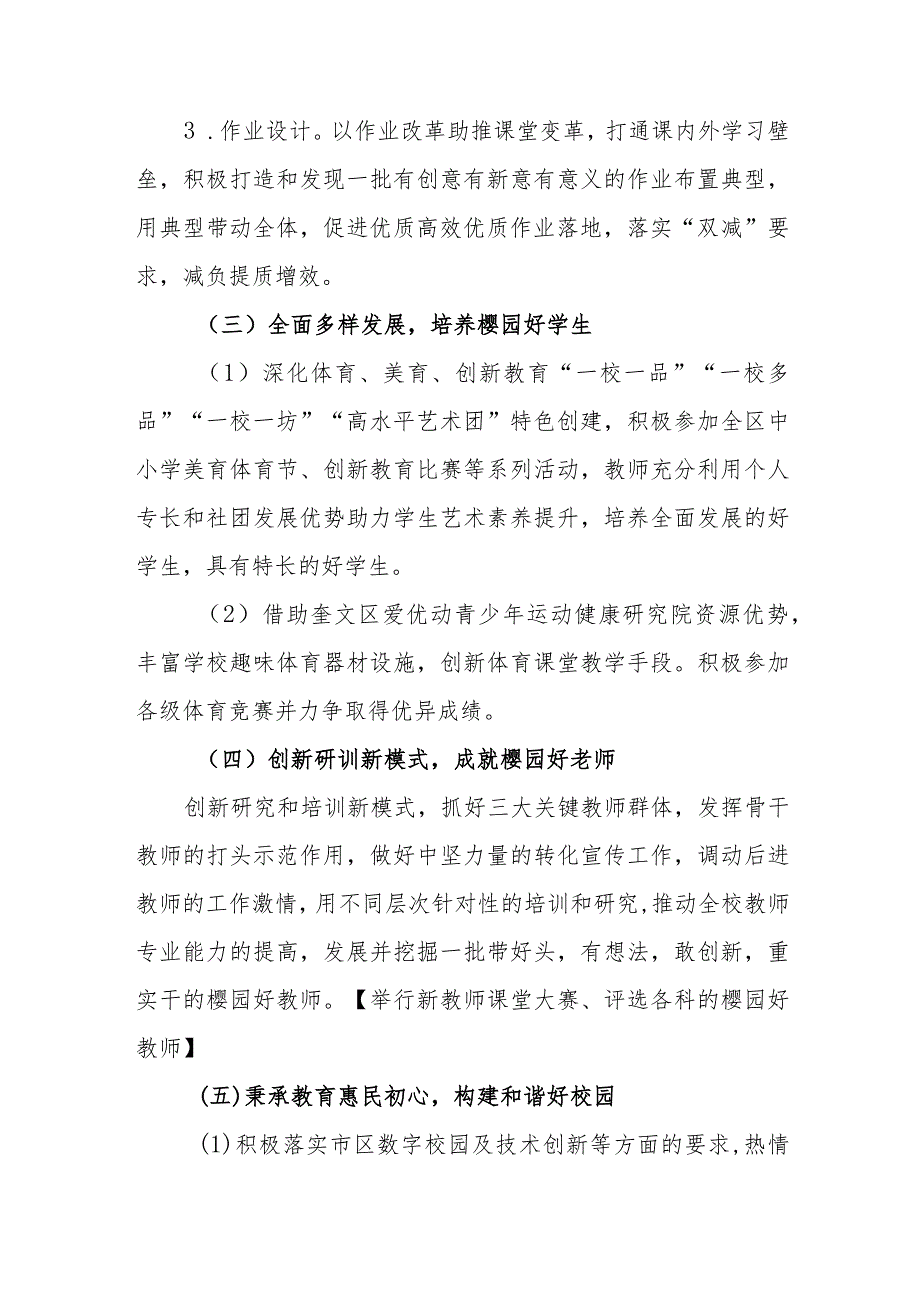 3 .作业设计。以作业改革助推课堂变革，打通课内外学习壁
垒，积极打造和发现一批有创意有新意有意义的作业布置典型，
用典型带动全体，促进优质高效优质作业落地，落实“双减”要
求，减负提质增效。
（三）全面多样发展，培养樱园好学生
（1）深化体育、美育、创新教育“一校一品”“一校多
品”“一校一坊”“高水平艺术团”特色创建，积极参加全区中
小学美育体育节、创新教育比赛等系列活动，教师充分利用个人
专长和社团发展优势助力学生艺术素养提升，培养全面发展的好
学生，具有特长的好学生。
（2）借助奎文区爱优动青少年运动健康研究院资源优势，
丰富学校趣味体育器材设施，创新体育课堂教学手段。积极参加
各级体育竞赛并力争取得优异成绩。
（四）创新研训新模式，成就樱园好老师
创新研究和培训新模式，抓好三大关键教师群体，发挥骨干
教师的打头示范作用，做好中坚力量的转化宣传工作，调动后进
教师的工作激情，用不同层次针对性的培训和研究,推动全校教师
专业能力的提高，发展并挖掘一批带好头，有想法，敢创新，重
实干的樱园好教师。【举行新教师课堂大赛、评选各科的樱园好
教师】
(五)秉承教育惠民初心，构建和谐好校园
(1)积极落实市区数字校园及技术创新等方面的要求,热情